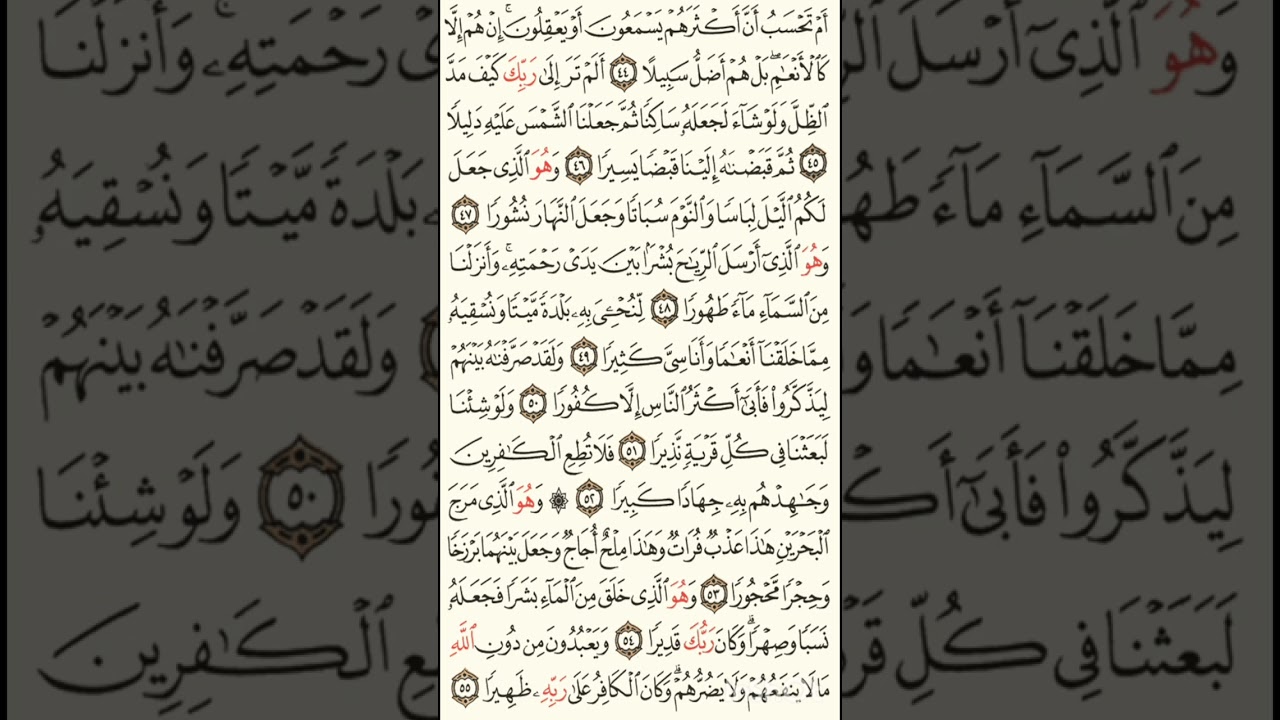 أَمۡ تَحۡسَبُ أَنَّ أَكۡثَرَهُمۡ يَسۡمَعُونَ أَوۡ يَعۡقِلُونَۚ إِنۡ هُمۡ إِلَّا
كَٱلۡأَنۡعَٰمِۖ بَلۡ هُمۡ أَضَلُّ سَبِيلًا ٤٤ أَلَمۡ تَرَ إِلَىٰ رَبِّكَ كَيۡفَ مَدَّ
ٱلظِّلَّ وَلَوۡ شَآءَ لَجَعَلَهُۥ سَاكِنٗا ثُمَّ جَعَلۡنَا ٱلشَّمۡسَ عَلَيۡهِ دَلِيلٗا
٤٥ ثُمَّ قَبَضۡنَٰهُ إِلَيۡنَا قَبۡضٗا يَسِيرٗا ٤٦ وَهُوَ ٱلَّذِي جَعَلَ
لَكُمُ ٱلَّيۡلَ لِبَاسٗا وَٱلنَّوۡمَ سُبَاتٗا وَجَعَلَ ٱلنَّهَارَ نُشُورٗا ٤٧
وَهُوَ ٱلَّذِيٓ أَرۡسَلَ ٱلرِّيَٰحَ بُشۡرَۢا بَيۡنَ يَدَيۡ رَحۡمَتِهِۦۚ وَأَنزَلۡنَا
مِنَ ٱلسَّمَآءِ مَآءٗ طَهُورٗا ٤٨ لِّنُحۡـِۧيَ بِهِۦ بَلۡدَةٗ مَّيۡتٗا وَنُسۡقِيَهُۥ
مِمَّا خَلَقۡنَآ أَنۡعَٰمٗا وَأَنَاسِيَّ كَثِيرٗا ٤٩ وَلَقَدۡ صَرَّفۡنَٰهُ بَيۡنَهُمۡ
لِيَذَّكَّرُواْ فَأَبَىٰٓ أَكۡثَرُ ٱلنَّاسِ إِلَّا كُفُورٗا ٥٠ وَلَوۡ شِئۡنَا
لَبَعَثۡنَا فِي كُلِّ قَرۡيَةٖ نَّذِيرٗا ٥١ فَلَا تُطِعِ ٱلۡكَٰفِرِينَ
وَجَٰهِدۡهُم بِهِۦ جِهَادٗا كَبِيرٗا ٥٢ ۞ وَهُوَ ٱلَّذِي مَرَجَ
ٱلۡبَحۡرَيۡنِ هَٰذَا عَذۡبٞ فُرَاتٞ وَهَٰذَا مِلۡحٌ أُجَاجٞ وَجَعَلَ بَيۡنَهُمَا بَرۡزَخٗا
وَحِجۡرٗا مَّحۡجُورٗا ٥٣ وَهُوَ ٱلَّذِي خَلَقَ مِنَ ٱلۡمَآءِ بَشَرٗا فَجَعَلَهُۥ
نَسَبٗا وَصِهۡرٗاۗ وَكَانَ رَبُّكَ قَدِيرٗا ٥٤ وَيَعۡبُدُونَ مِن دُونِ ٱللَّهِ
مَا لَا يَنفَعُهُمۡ وَلَا يَضُرُّهُمۡۗ وَكَانَ ٱلۡكَافِرُ عَلَىٰ رَبِّهِۦ ظَهِيرٗا ٥٥